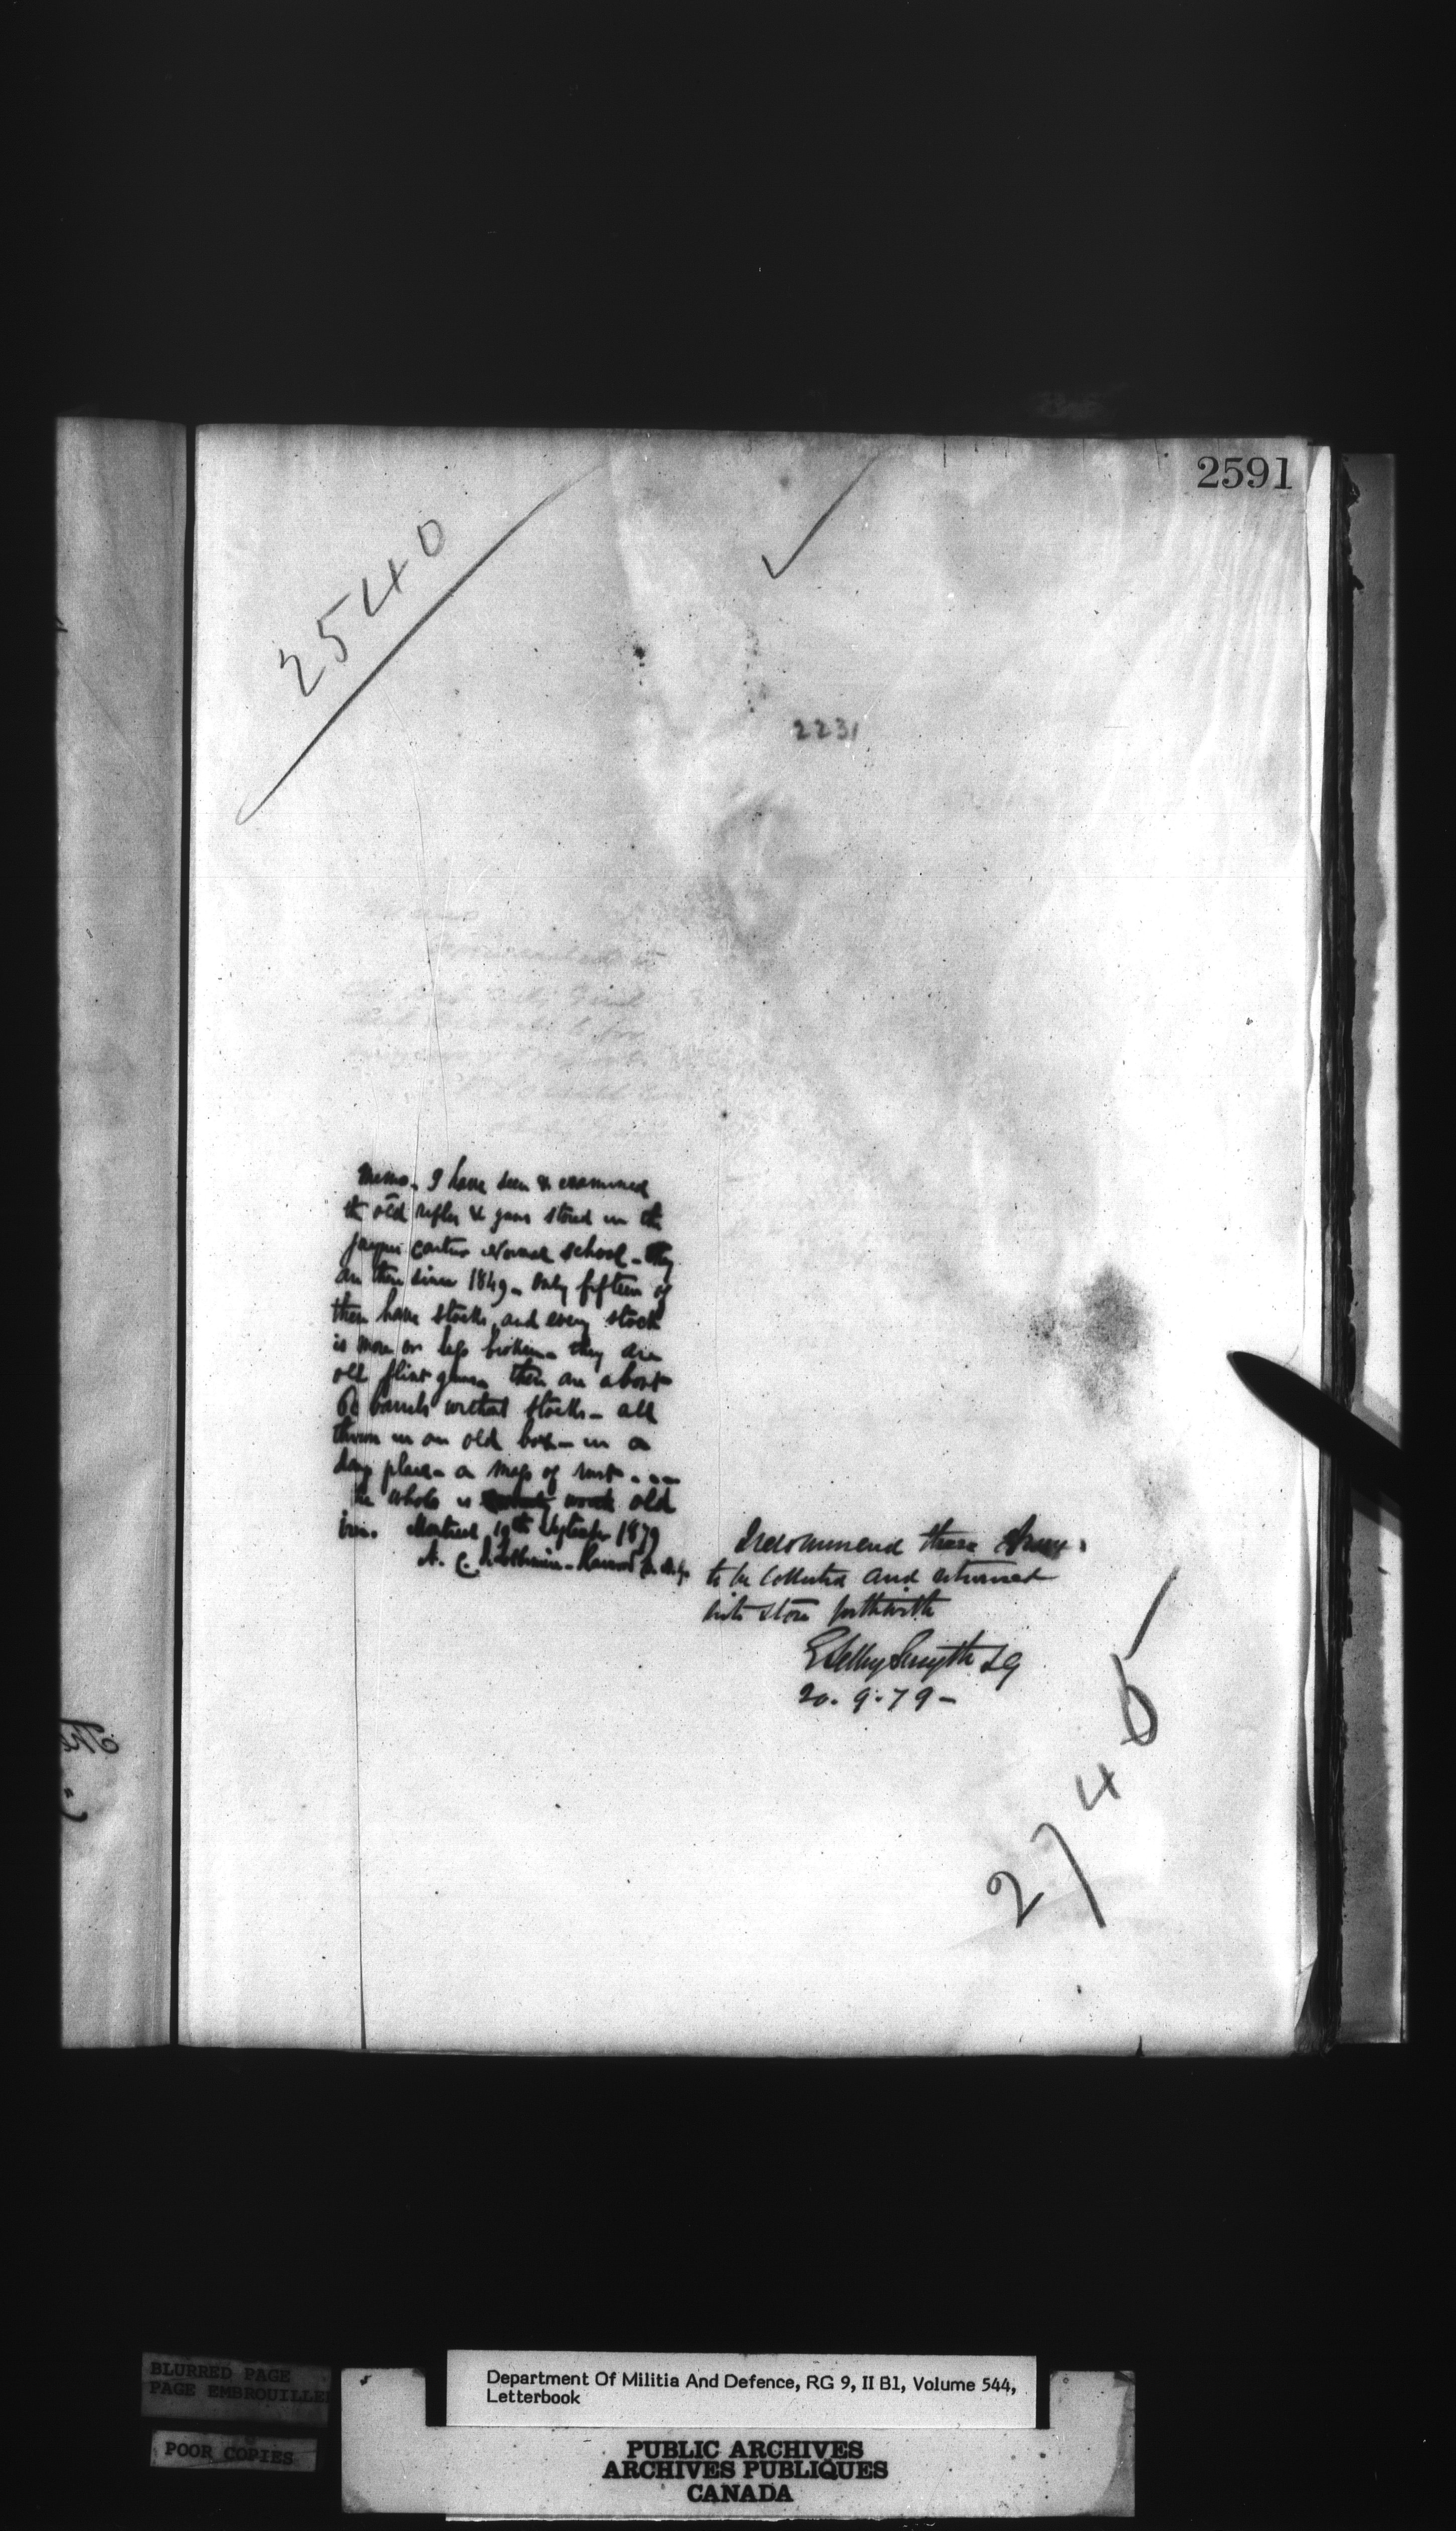 2591
2540
2231
Memo. I have seen & examined
the old rifles & guns stored in the
Jacques Cartier Normal School - they
are there since 1849 - only fifteen of
them have stocks, and every stock
is more or less broken - they are
old flint guns - there are about
60 barrels without stocks - all
thrown in an old box - in a
damp place - a mass of rust - - -
the whole is old
iron. Montreal 19th September 1879
A. C. de Lotbinière-Harwood
I recommend these Arms
to be collected and returned
into store forthwith
E Selby Smyth LG
20. 9. 79 -
2740
The
BLURRED PAGE
PAGE EMBROUILLEE
POOR COPIES
Department Of Militia And Defence, RG 9, II B1, Volume 544,
Letterbook
PUBLIC ARCHIVES
ARCHIVES PUBLIQUES
CANADA